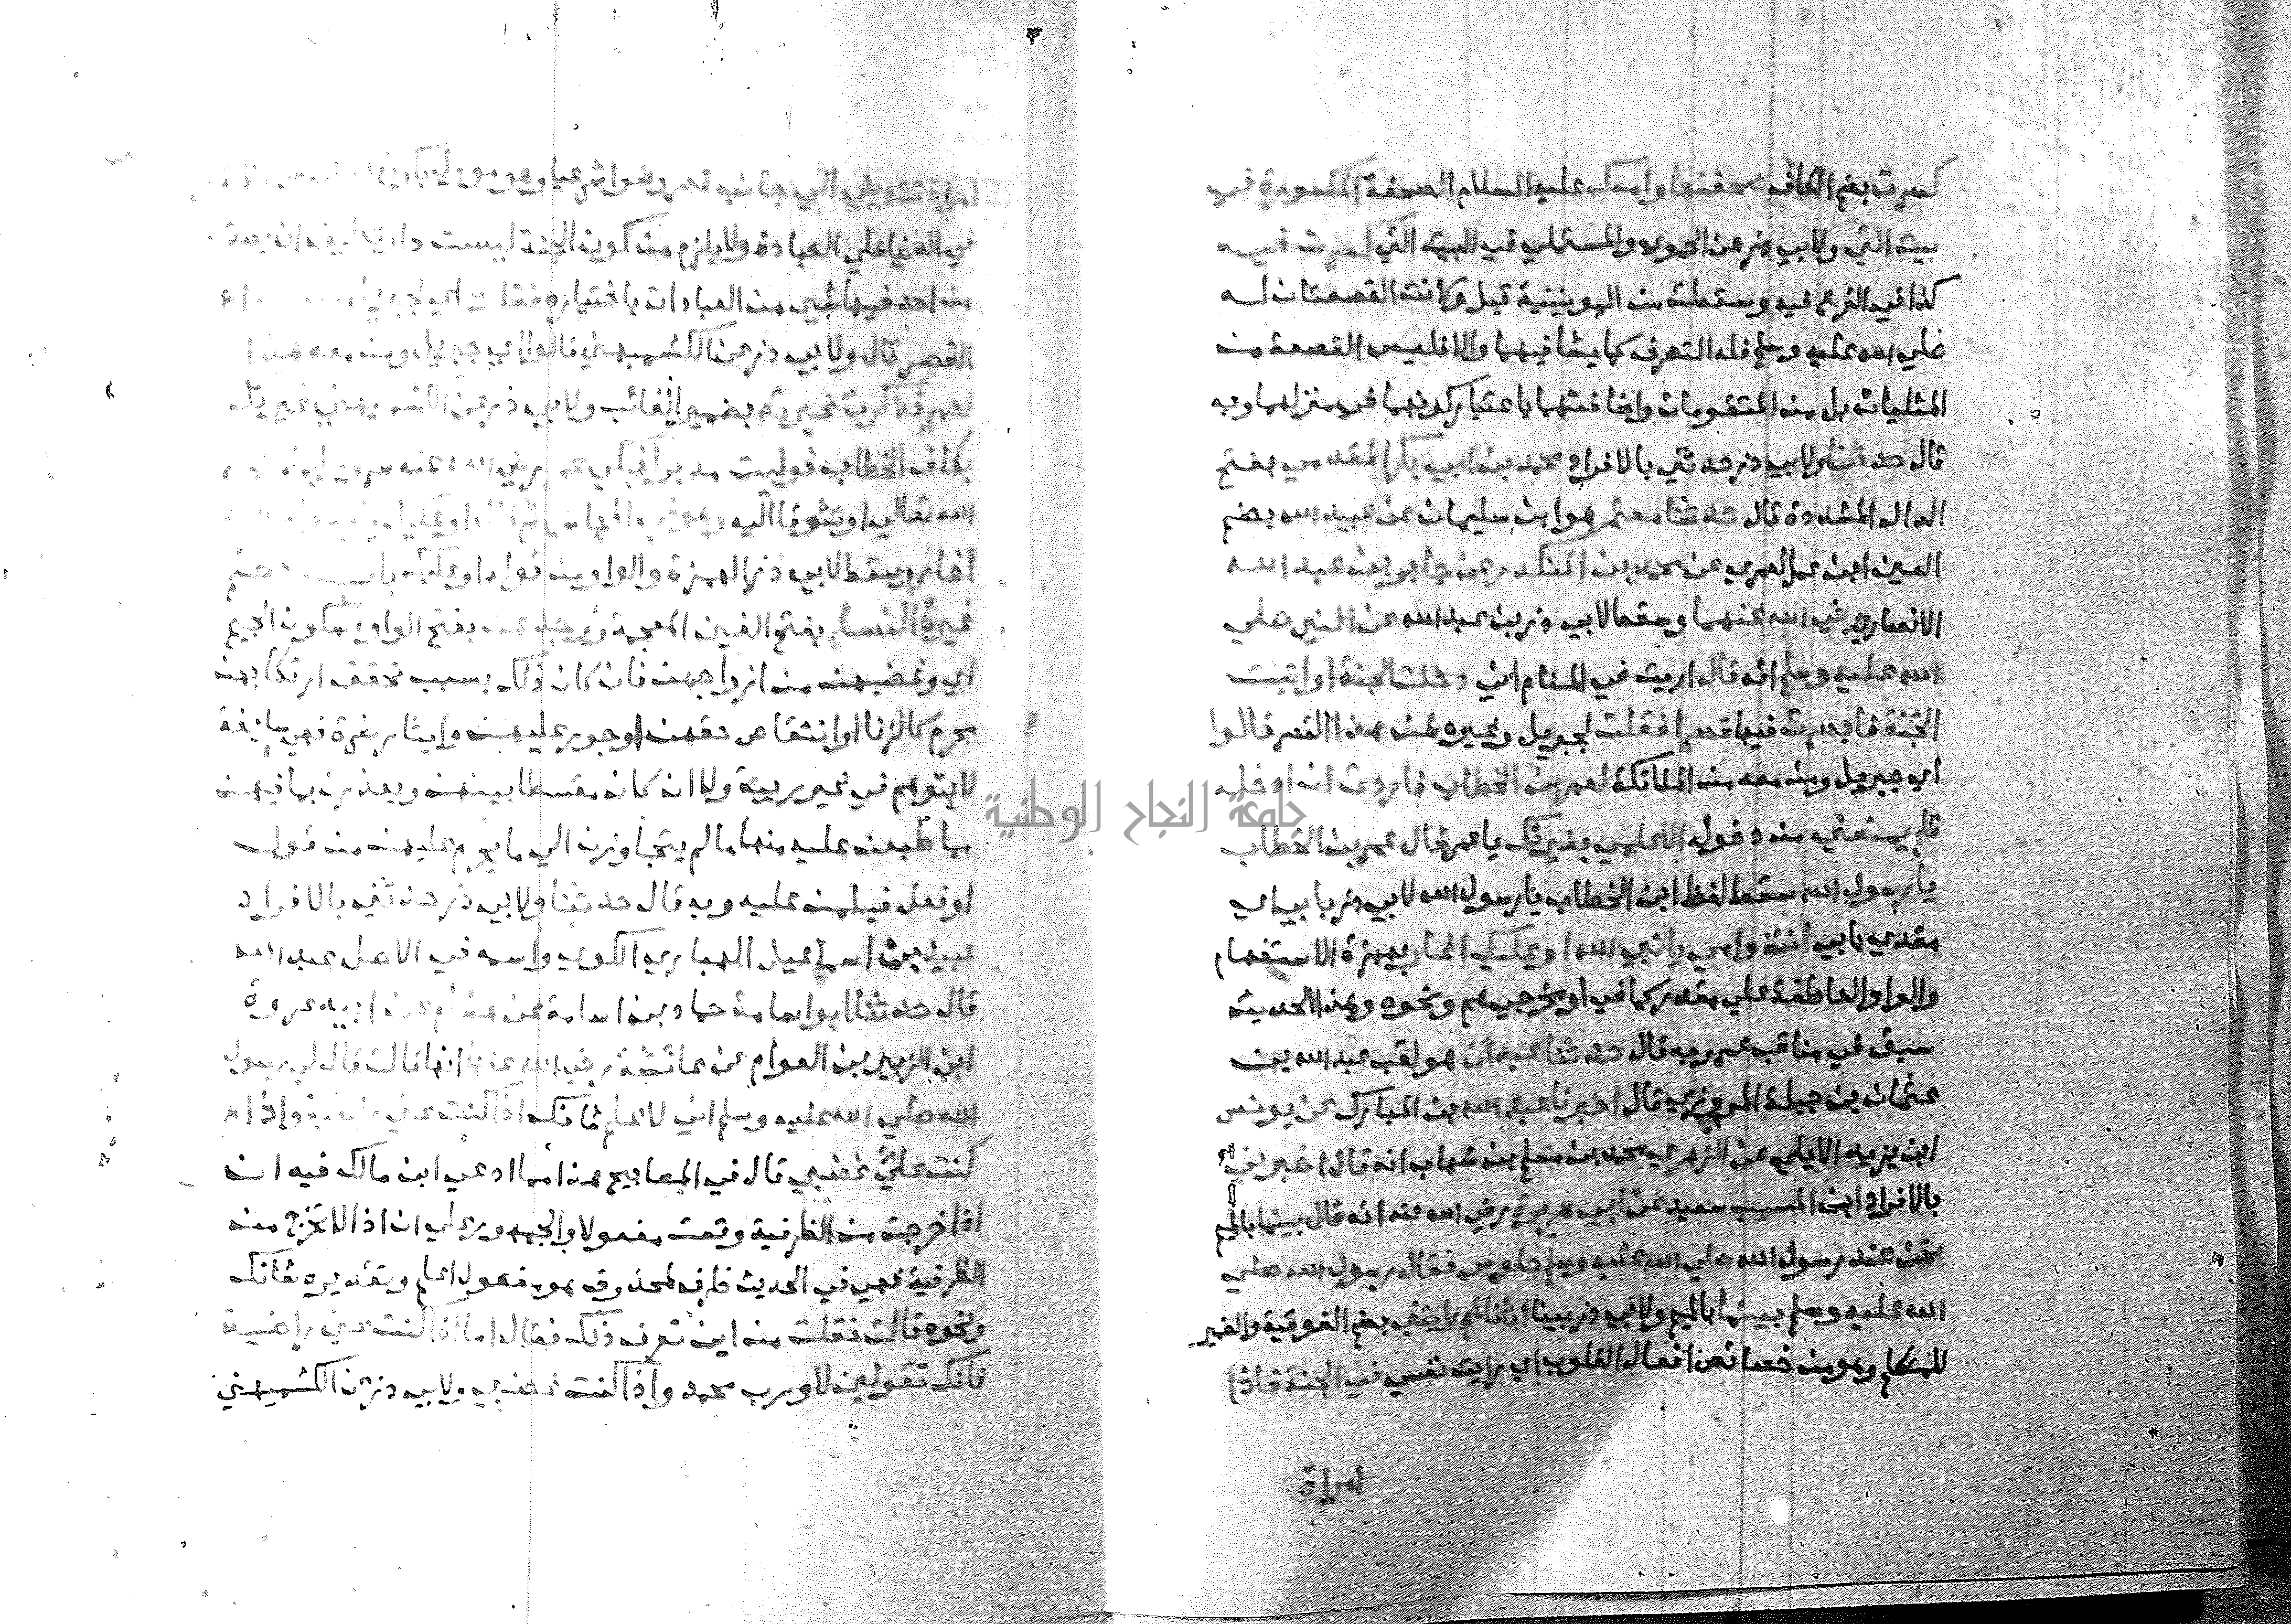 كسرت بضم الكاف صحفتها وامسك عليه السلام الصحفة المكسورة في
بيت التي ولابي ذر عن الحموي والمستملي في البيت التي كسرت فيه
كذا في الفرع فيه وسقطت من اليونينية قيل وكانت القصعتان له
صلي الله عليه وسلم فله التصرف كما يشا فيهما والا فليس القصعة من
المثليات بل من المتقومات واضافتهما باعتبار كونهما في منزلهما وبه
قال حدثنا ولابي ذر حدثني بالافراد محمد بن ابي بكر المقدمي بفتح
الدال المشددة قال حدثنا معتمر هو ابن سليمان عن عبيد الله بضم
العين ابن عمر العمري عن محمد بن المنكدر عن جابر بن عبد الله
الانصاري رضي الله عنهما وسقط لابي ذر بن عبد الله عن النبي صلي
الله عليه وسلم انه قال اريت في المنام اني دخلت الجنة او اتيت
الجنة فابصرت فيها قصرا فقلت لجبريل وغيره لمن هذا القصر قالوا
اي جبريل ومن معه من الملائكة لعمر بن الخطاب فاردت ان ادخله
فلم يمنعني من دخوله الا علمي بغيرتك يا عمر قال عمر بن الخطاب
يا رسول الله سقط لفظ ابن الخطاب يا رسول الله لابي ذر بابي اي
مفدي بابي انت وامي يا نبي الله او عليك اغار بهمزة الاستفهام
والواو العاطفة علي مقدر كما في او مخرجي هم ونحوه وهذا الحديث
سبق في مناقب عمر وبه قال حدثنا عبدان هو لقب عبد الله بن
عثمان بن جبلة المروزي قال اخبرنا عبد الله بن المبارك عن يونس
ابن يزيد الايلي عن الزهري محمد بن مسلم بن شهاب انه قال اخبرني
بالافراد ابن المسيب سعيد عن ابي هريرة رضي الله عنه انه قال بينما بالميم
نحن عند رسول الله صلي الله عليه وسلم جلوس فقال رسول الله صلي
الله عليه وسلم بينما بالميم ولابي ذر بينا انا نائم رايتني بضم الفوقية والضمير
للمتكلم وهو من خصائص افعال القلوب اي رايت نفسي في الجنة فاذا
امراة
امراة تتوضي الي جانب قصر
في الدنيا علي العبادة ولا يلزم من كون الجنة ليست دار
من احد فيها شي من العبادات باختياره فقلت
القصر قال ولابي ذر عن الكشميهني قالوا اي جبريل ومن معه هذا
لعمر فذكرت غيرته بضمير الغائب ولابي ذر عن الكشميهني غيرتك
بكاف الخطاب فوليت مدبرا فبكي عمر رضي الله عنه
الله تعالي او تشوقا اليه وهو في المجلس ثم قال او عليك يا رسول الله
اغار وسقط لابي ذر الهمزة والواو من قوله او عليك باب
غيرة النساء بفتح الغين المعجمة ووجدهن بفتح الواو وسكون الجيم
اي وغضبهن من ازواجهن فان كان ذلك بسبب تحقق ارتكابهن
محرم كالزنا او انتقاص حقهن وجور عليهن وايثار ضرة فهي سايغة
لا بتوهم في غير ريبة ولا ان كان مقسطا بينهن ويعذرن بما فيهن
مما طبعن عليه منها ما لم يتجاوزن الي ما يحرم عليهن من قول
او فعل فيلمن عليه وبه قال حدثنا ولابي ذر حدثني بالافراد
عبيد بن اسماعيل الهباري الكوفي واسمه في الاصل عبد الله
قال حدثنا ابو اسامة حماد بن اسامة عن هشام عن ابيه عروة
ابن الزبير بن العوام عن عائشة رضي الله عنها انها قالت قال لي رسول
الله صلي الله عليه وسلم اني لاعلم شانك اذا كنت عني راضية واذا
كنت علي غضبي قال في المصابيح هذا مما ادعي ابن مالك فيه ان
اذا خرجت من الظرفية وقعت مفعولا والجمهور علي ان اذا لا تخرج عن
الظرفية فهي في الحديث ظرف لمحذوف هو مفعول اعلم وتقديره شانك
ونحوه قالت فقلت من اين تعرف ذلك فقال اما اذا كنت عني راضية
فانك تقولين لا ورب محمد واذا كنت غضبي ولابي ذر عن الكشميهني
جامعة النجاح الوطنية